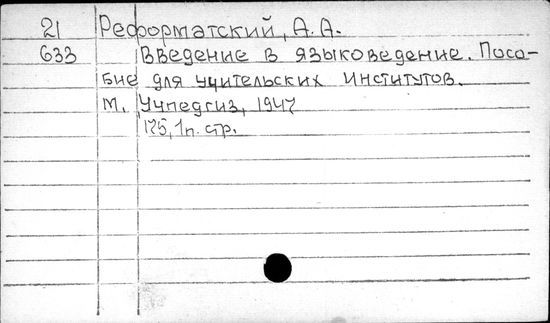 21 Реформатский, А. А.
633 Введение в языковедение. Посо-
бие для учительских институтов.
М., Учпедгиз, 1947
175, 1 п. стр.